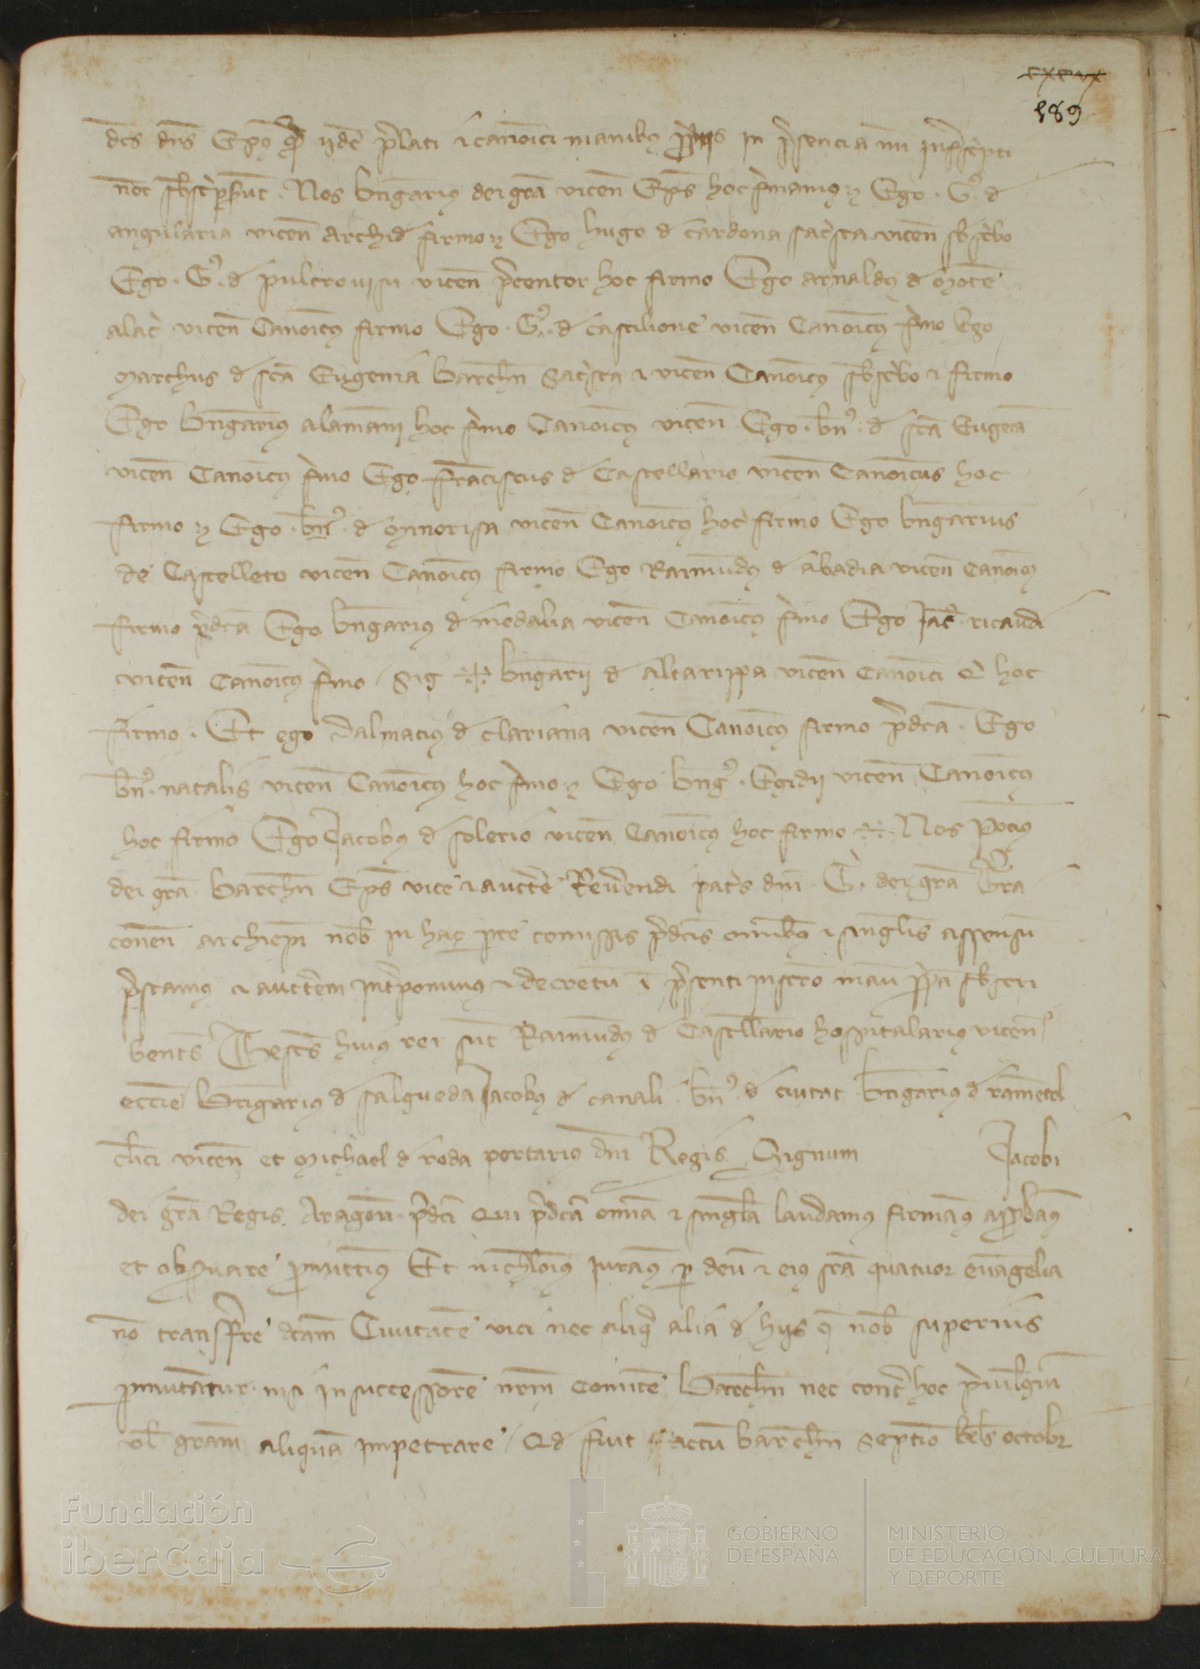 cxcvx
189
dcs dns Epus qd iidē plati & canonici manibus ppriis in psencia mi infrascripti
nec sbscpserūt. Nos bngarius dei gra vicen Eps hoc firmamus Ego. G. d
angularia vicen Archid firmo Ego hugo d Cardona sacsta vicen sbscbo
Ego. G. d pulcrovisu vicen pcentor hoc firmo Ego arnaldus d Monte
alac vicen Canoicus firmo Ego. G. d castilione vicen Canoicus firmo Ego
Marchus d sca Eugenia barchn Sacsta & vicen Canoicus sbscbo & firmo
Ego bngarius alamani hoc firmo Canoicus vicen Ego. bn. d sca Eugea
vicen Canoicus firmo Ego Franciscus d Castellario vicen Canoicus hoc
firmo Ego. bn. d Minorisa vicen Canoicus hoc firmo Ego bngarius
de Castelleto vicen Canoicus firmo Ego Raimundus d abadia vicen Canoicus
firmo pdca Ego bngarius d medalia vicen Canoicus firmo Ego Iac ricaudi
vicen Canoicus firmo / Sig bngarii d altarippa vicen Canoici q hoc
firmo. Et ego Dalmacius d clariana vicen Canoicus firmo pdca. Ego
bn. natalis vicen Canoicus hoc firmo Ego bng. Egidii vicen Canoicus
hoc firmo Ego Iacobus d solerio vicen Canoicus hoc firmo. Nos Pocius
dei gra barchn Eps vice & aucte Revendi patis dni. G. dei gra Tra
conen archiepi nob in hac pte comissis pdcis omibus & singlis assensū
pstamus & auctem intponimus & decretū i psenti insero manu ppa sbscri
bentes Testes huius rei sūt Raimundus d Castellario hospitalarius vicen
eccie bengarius d salgueda Iacobus d canali. bn. d civitat bngarius d ramētol
clici vicen et Michael d roda portarius dni Regis Signum Iacobi
dei gra Regis Aragon pdci Qui pdca omia & singla laudamus firmamus approbamus
et obsvare pmittimus Et nichlominus iuramus p deū & eius sca quatuor evāgelia
no transferre dcam Civitatē vici nec aliqd alia d hiis q nob superius
pmutantur nisi in successorē nrm Comitē barchn nec cont hoc privilegiū
vl gram aliquā impetrare / Qd fuit actū barchn Septio kls octobr
Fundación
iberCaja
GOBIERNO
DE ESPAÑA
MINISTERIO
DE EDUCACIÓN, CULTURA
Y DEPORTE